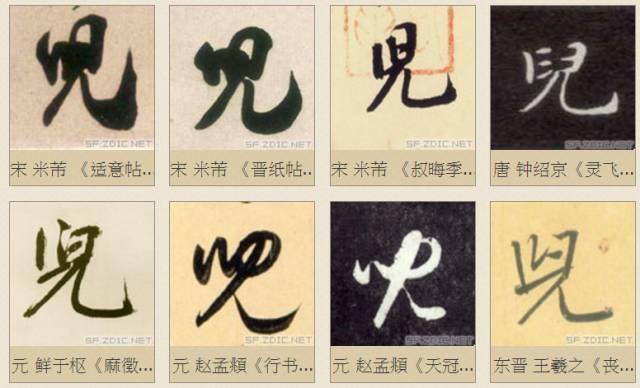 兒 兒 兒 兒
SF.ZDIC.NET SF.ZDIC.NET SF.ZDIC.NET SF.ZDIC.NET
宋 米芾 《适意帖... 宋 米芾 《晋纸帖... 宋 米芾 《叔晦季... 唐 钟绍京《灵飞...
兒 兒 兒 兒
SF.ZDIC.NET SF.ZDIC.NET SF.ZDIC.NET SF.ZDIC.NET
元 鲜于枢《麻徵... 元 赵孟頫《行书... 元 赵孟頫《天冠... 东晋 王羲之《丧...